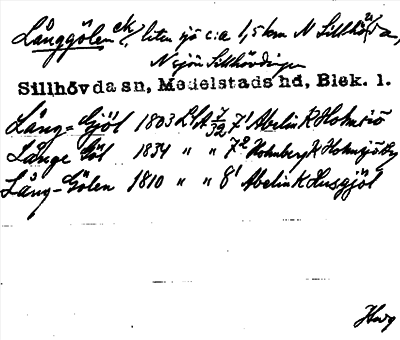 Långgölen ek, liten sjö c:a 1,5 km N Sillhövda,
N sjön Sillhövdingen
Sillhövda sn, Medelstads hd, Blek. l.
Lång-Gjöl 1803 LSA 7¹ Abelin K Holmsjö
Långe Göl 1834 " " 7² Holmberg K Holmsjöby
Lång-Gölen 1810 " " 8¹ Abelin K Husgjöl